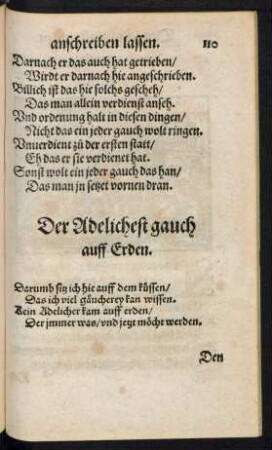 anschreiben lassen. 110
Darnach er das auch hat getrieben/
Wirdt er darnach hie angeschrieben.
Billich ist das hie solchs gescheh/
Das man allein verdienst anseh.
Vnd ordenung halt in diesen dingen/
Nicht das ein jeder gauch wolt ringen.
Vnuerdient zů der ersten statt/
Eh das er sie verdienet hat.
Sonst wolt ein jeder gauch das han/
Das man jn setzet vornen dran.
Der Adelichest gauch
auff Erden.
Darumb sitz ich hie auff dem küssen/
Das ich viel gäucherey kan wissen.
Kein Adelicher kam auff erden/
Der jmmer was/vnd jetzt möcht werden.
Den